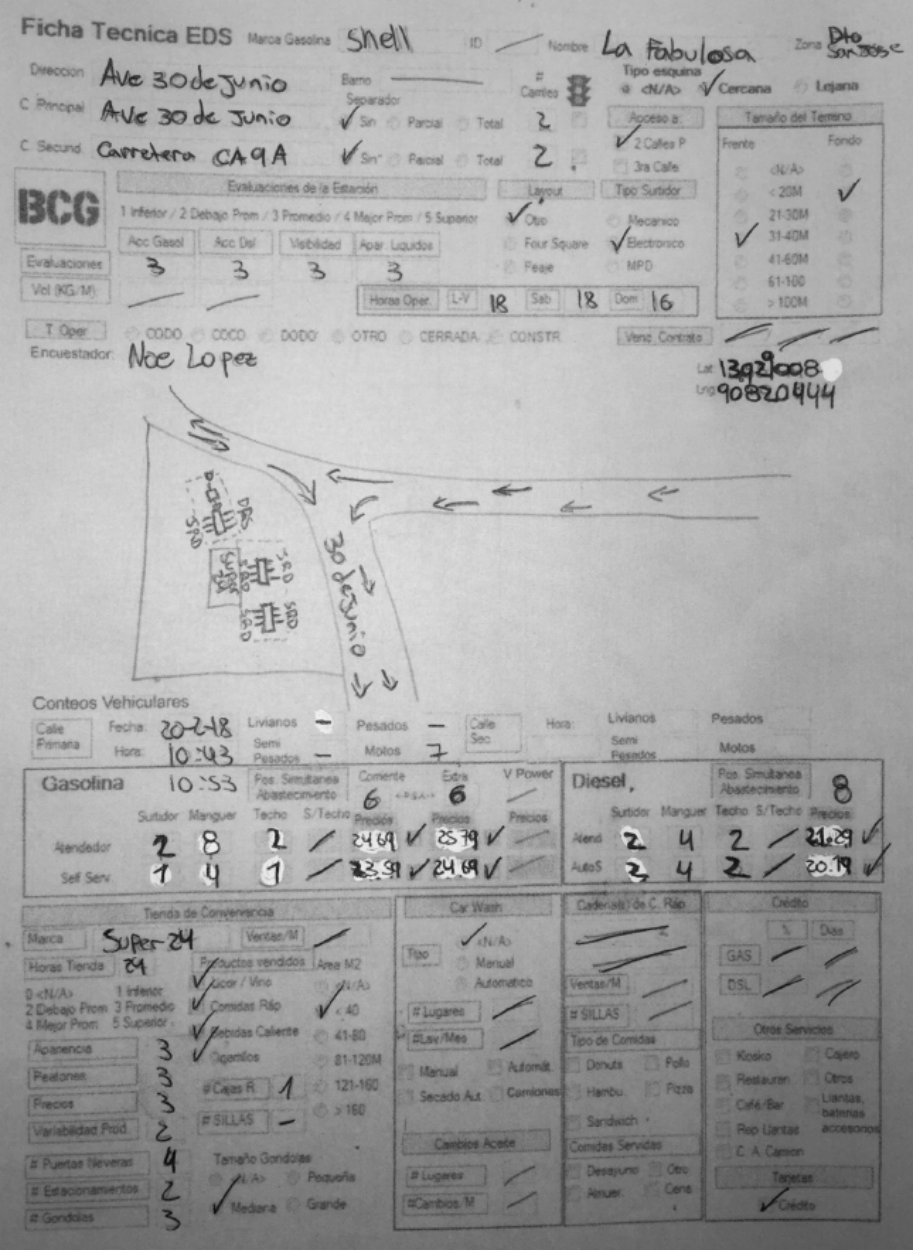 Ficha Tecnica EDS Marca Gasolina Shell ID Nombre La Fabulosa Zona Dto San Jose
Direccion Ave 30 de junio Barrio # Carriles Tipo esquina <N/A> Cercana Lejana
C. Principal Ave 30 de Junio Separador Sin Parcial Total 2 Acceso a: Tamaño del Terreno
C. Secund. Carretera CA9A Sin Parcial Total 2 2 Calles P Frente Fondo
3ra Calle <N/A>
BCG Evaluaciones de la Estación Layout Tipo Surtidor < 20M
1 Inferior / 2 Debajo Prom / 3 Promedio / 4 Mejor Prom / 5 Superior Otro Mecanico 21-30M
Acc Gasol Acc Dsl Visibilidad Apar. Liquidos Four Square Electronico 31-40M
Evaluaciones 3 3 3 3 Peaje MPD 41-60M
61-100
Vol (KG/M) Horas Oper. L-V 18 Sab 18 Dom 16 > 100M
T Oper CODO COCO DODO OTRO CERRADA CONSTR. Venc. Contrato
Encuestador: Noe Lopez
Lat
Lng 90820444
DRS
SRD
SRD
SRD
30 de junio
Conteos Vehiculares
Calle Primaria Fecha: 20-2-18 Livianos - Pesados - Calle Sec Hora: Livianos Pesados
Hora: 10:43 Semi Pesados - Motos 7 Semi Pesados Motos
Gasolina 10:53 Pos. Simultanea Abastecimiento Corriente 6 Extra 6 V Power Diesel Pos. Simultanea Abastecimiento 8
Surtidor Manguer Techo S/Techo Precios Precios Precios Surtidor Manguer Techo S/Techo Precios
Atendedor 2 8 2 24.69 25.79 Atend 2 4 2 21.29
Self Serv. 1 4 1 23.59 24.69 AutoS 2 4 2 20.19
Tienda de Conveniencia Car Wash Cadena(s) de C. Ráp. Crédito
Marca Super 24 Ventas/M Tipo <N/A> % Dias
Horas Tienda 24 Productos vendidos Area M2 Manual GAS
0 <N/A> 1 Inferior Licor / Vino <N/A> Automatico Ventas/M DSL
2 Debajo Prom 3 Promedio Comidas Ráp < 40 # Lugares # SILLAS
4 Mejor Prom 5 Superior Bebidas Caliente 41-80 #Lav/Mes Tipo de Comidas Otros Servicios
Apariencia 3 Cigarrillos 81-120M Manual Automát. Donuts Pollo Kiosko Cajero
Peatones 3 # Cajas R. 1 121-160 Secado Aut. Camiones Hambu. Pizza Restauran Otros
Precios 3 # SILLAS - > 160 Sandwich Café/Bar Llantas, baterias accesorios
Variabilidad Prod. 2 Cambios Aceite Comidas Servidas Rep Llantas
# Puertas Neveras 4 Tamaño Gondolas # Lugares Desayuno Otro C. A. Camion
# Estacionamientos 2 <N/A> Pequeña #Cambios/M Almuer. Cena Tarjetas
# Gondolas 3 Mediana Grande Crédito